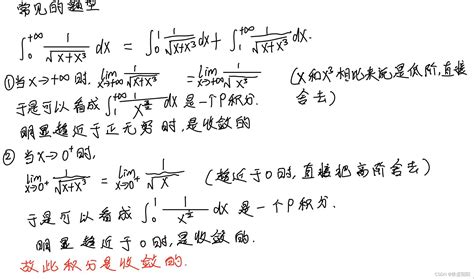 常见的题型
∫₀^{+∞} 1/√(x+x³) dx = ∫₀¹ 1/√(x+x³) dx + ∫₁^{+∞} 1/√(x+x³) dx.
①当x→+∞时, lim_{x→+∞} 1/√(x+x³) = lim_{x→+∞} 1/√(x³) (x和x³相比来说是低阶,直接
于是可以看成∫₁^{+∞} 1/x^{3/2} dx 是一个P积分. 舍去)
明显趋近于正无穷时,是收敛的
② 当x→0⁺时,
lim_{x→0⁺} 1/√(x+x³) = lim_{x→0⁺} 1/√x (趋近于0时,直接把高阶舍去)
于是可以看成 ∫₀¹ 1/x^{1/2} dx 是一个P积分.
明显趋近于0时,是收敛的.
故此积分是收敛的.